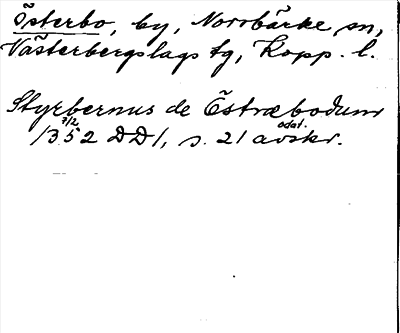 Österbo, by, Norrbärke sn,
Västerbergslags tg, Kopp. l.
Styrbernus de Östræboðum
1352 7/2 DD 1, s. 21 odat. avskr.